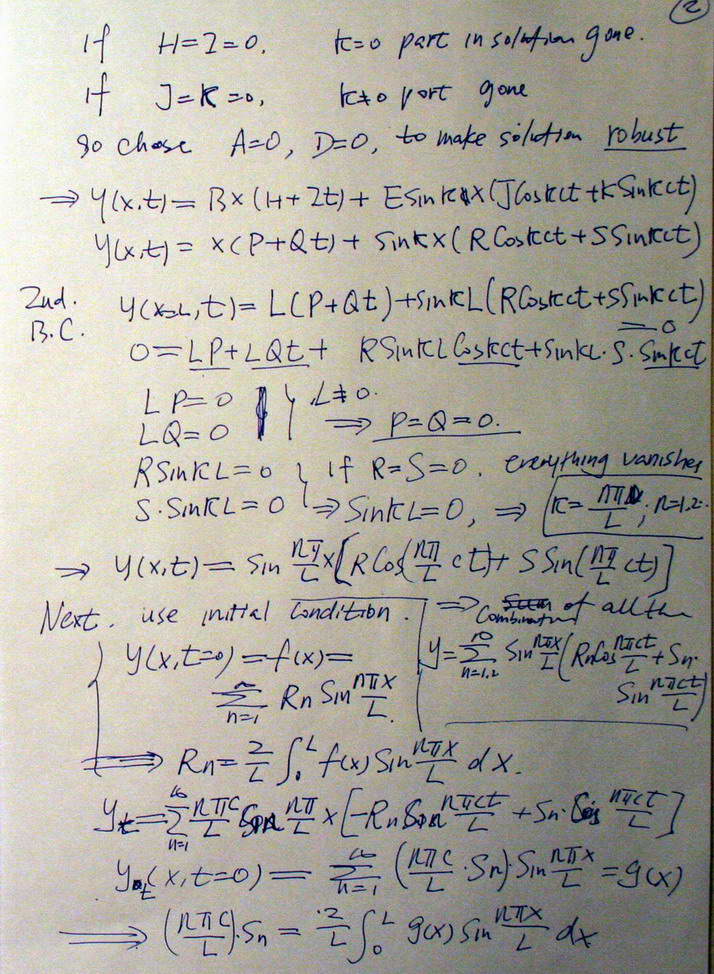 2
If H=I=0, k=0 part in solution gone.
If J=K=0, k≠0 part gone
So chose A=0, D=0, to make solution robust
⇒ y(x,t)= Bx(H+It)+ E Sin kx(J Cos kct + K Sin kct)
y(x,t)= x(P+Qt)+ Sin kx(R Cos kct + S Sin kct)
2nd. B.C. y(x=L,t)= L(P+Qt)+ sin kL(R Cos kct + S Sin kct)
=0
0= LP + LQt + R Sin kL Cos kct + Sin kL·S·Sin kct
LP=0
LQ=0 } L≠0. ⇒ P=Q=0.
R Sin kL=0 } If R=S=0, everything vanishes
S·Sin kL=0 ⇒ Sin kL=0, ⇒ k= nπ/L ; n=1,2..
⇒ y(x,t)= Sin nπ/L x [R Cos(nπ/L ct)+ S Sin(nπ/L ct)]
Next. use initial condition.
⇒ Combination of all the
y= ∑ n=1,2 ∞ Sin nπx/L (Rn Cos nπct/L + Sn·
Sin nπct/L)
y(x,t=0)=f(x)=
∑ n=1 ∞ Rn Sin nπx/L.
⇒ Rn= 2/L ∫₀ᴸ f(x) Sin nπx/L dx.
yt= ∑ n=1 ∞ nπc/L Sin nπ/L x [-Rn Sin nπct/L + Sn·Cos nπct/L]
yt(x,t=0)= ∑ n=1 ∞ (nπc/L ·Sn)·Sin nπx/L =g(x)
⇒ (nπc/L)·Sn = 2/L ∫₀ᴸ g(x) Sin nπx/L dx